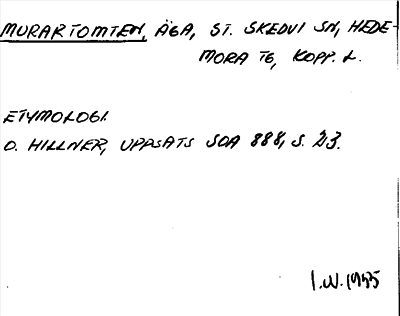 MURARTOMTEN, ÄGA, ST. SKEDVI SN, HEDE-
MORA TG, KOPP. L.
ETYMOLOGI.
O. HILLNER, UPPSATS SOA 888, S. 23.
I.W. 1955